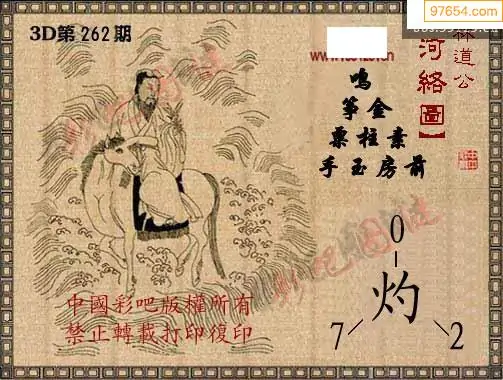 97654.com
3D第262期
林道公
河絡圖】
鸣
筝金
粟柱素
手玉房前
0
灼
7 2
中國彩吧版權所有
禁止轉載打印復印